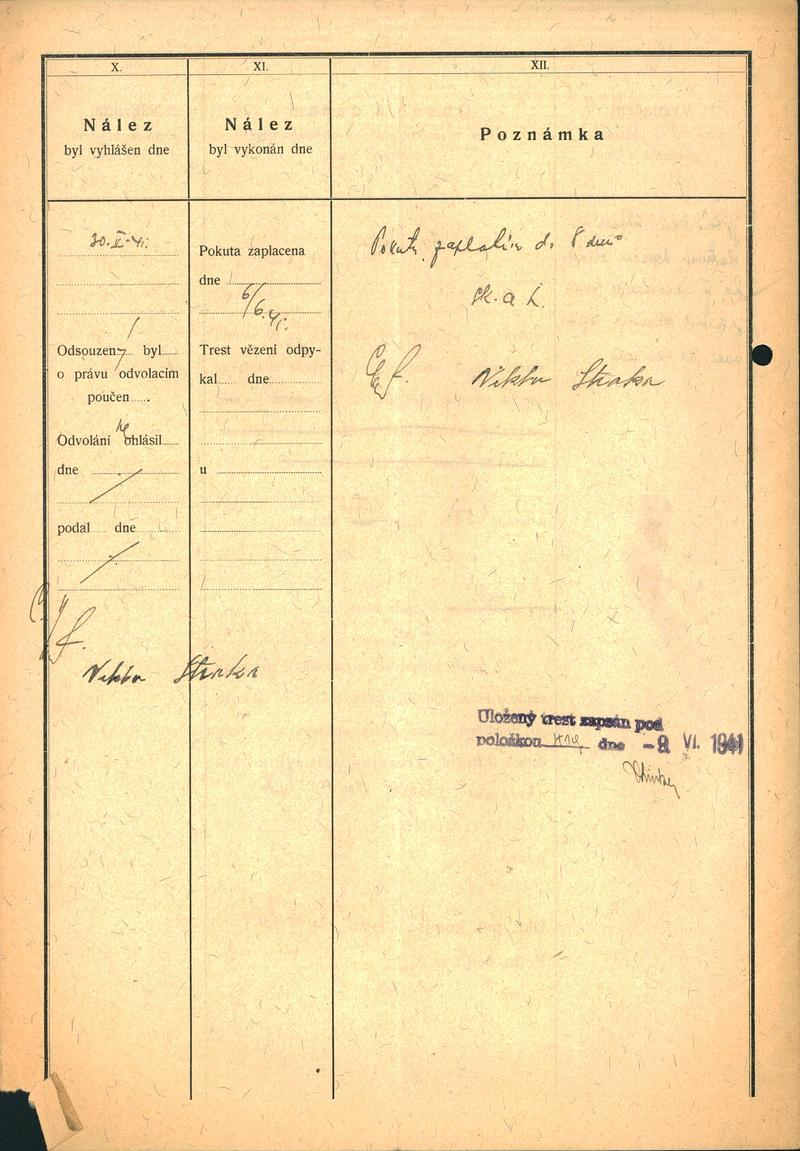 X.
Nález
byl vyhlášen dne
30.V.41.
Odsouzený byl
o právu odvolacím
poučen
Odvolání neohlásil
dne
podal dne
Viktor Straka
XI.
Nález
byl vykonán dne
Pokuta zaplacena
dne
6/6.41.
Trest vězení odpy-
kal dne
u
XII.
Poznámka
Pokutu zaplatím do 8 dnů
sk. a L.
Viktor Straka
Uložený trest zapsán pod
položkou dne -9. VI. 1941